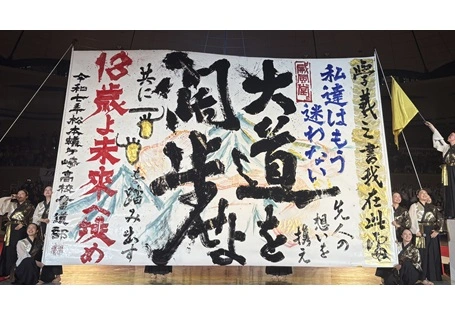 學羲之書我在此處
私達はもう
迷わない
先人の
想いを
携え
大道を
闊歩せよ
共に一
を踏み出す
18歳よ未来へ挑め
令和七年松本蟻ヶ崎高校書道部